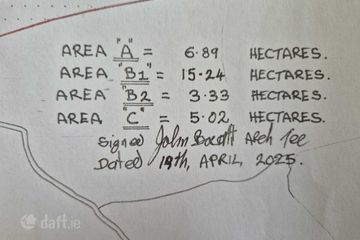 AREA "A" = 6.89 HECTARES.
AREA "B1" = 15.24 HECTARES.
AREA "B2" = 3.33 HECTARES.
AREA "C" = 5.02 HECTARES.
Signed John
Dated 19th, APRIL 2025.
daft.ie